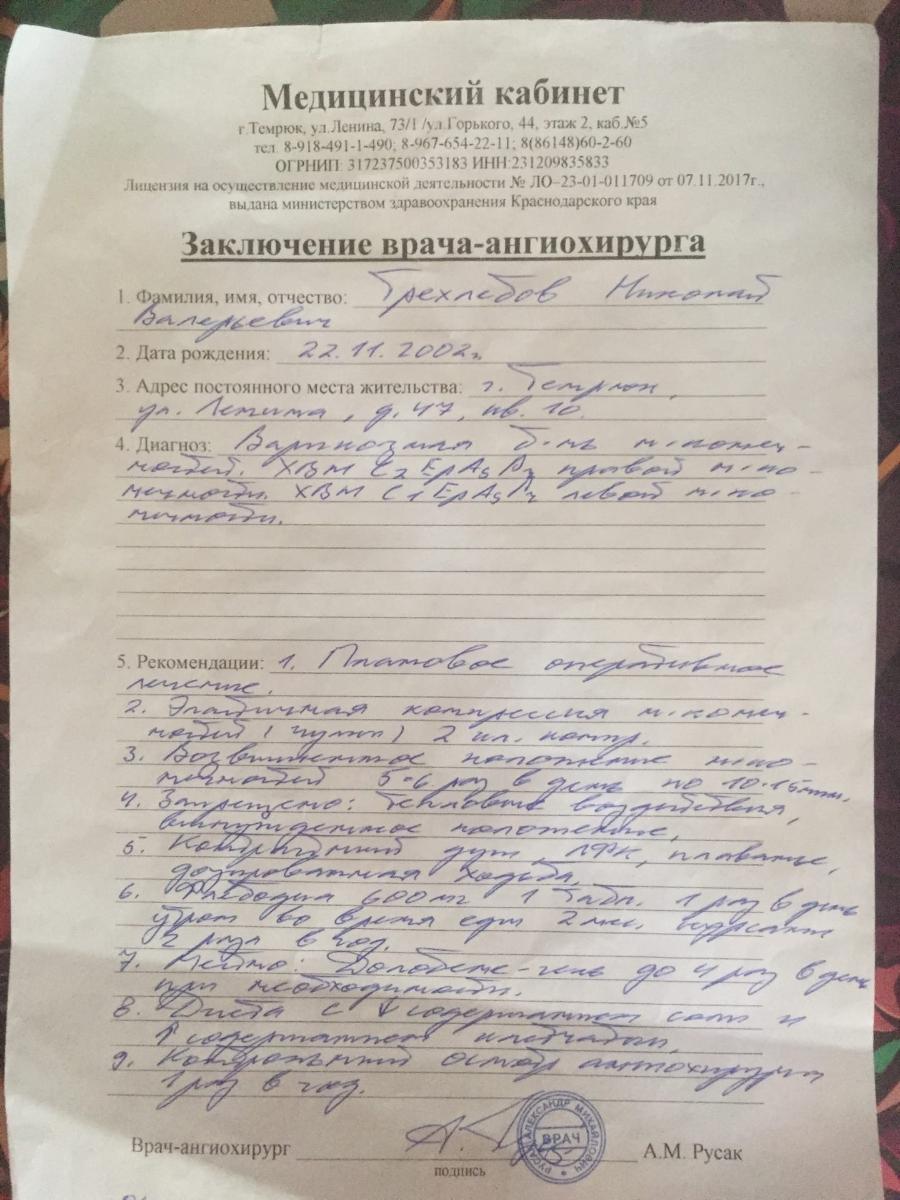 Медицинский кабинет
г.Темрюк, ул.Ленина, 73/1 /ул.Горького, 44, этаж 2, каб.№5
тел. 8-918-491-1-490; 8-967-654-22-11; 8(86148)60-2-60
ОГРНИП: 317237500353183 ИНН:231209835833
Лицензия на осуществление медицинской деятельности № ЛО–23-01-011709 от 07.11.2017г.,
выдана министерством здравоохранения Краснодарского края
Заключение врача-ангиохирурга
1. Фамилия, имя, отчество: Трехлебов Николай
Валерьевич
2. Дата рождения: 22.11.2002г.
3. Адрес постоянного места жительства: г. Темрюк,
ул. Ленина, д.47, кв. 10.
4. Диагноз: Варикозная б-нь н.конеч-
ностей. ХВН C2EpAsPr правой н.ко-
нечности. ХВН C1EpAsPr левой н.ко-
нечности.
5. Рекомендации: 1. Плановое оперативное
лечение.
2. Эластичная компрессия н.конеч-
ностей (чулки) 2 кл. компр.
3. Возвышенное положение н.ко-
нечностей 5-6 раз в день по 10-15мин.
4. Запрещено: тепловые воздействия,
вынужденное положение.
5. Контрастный душ, ЛФК, плавание,
дозированная ходьба.
6. Флебодиа 600мг 1 табл. 1 раз в день
утром во время еды 2 мес. курсами
2 раза в год.
7. Местно: Долобене-гель до 4 раз в день
при необходимости.
8. Диета с ↓ содержанием соли и
↑ содержанием клетчатки.
9. Контрольный осмотр ангиохирурга
1 раз в год.
Врач-ангиохирург А.М. Русак
подпись
РУСАК АЛЕКСАНДР МИХАЙЛОВИЧ
ВРАЧ